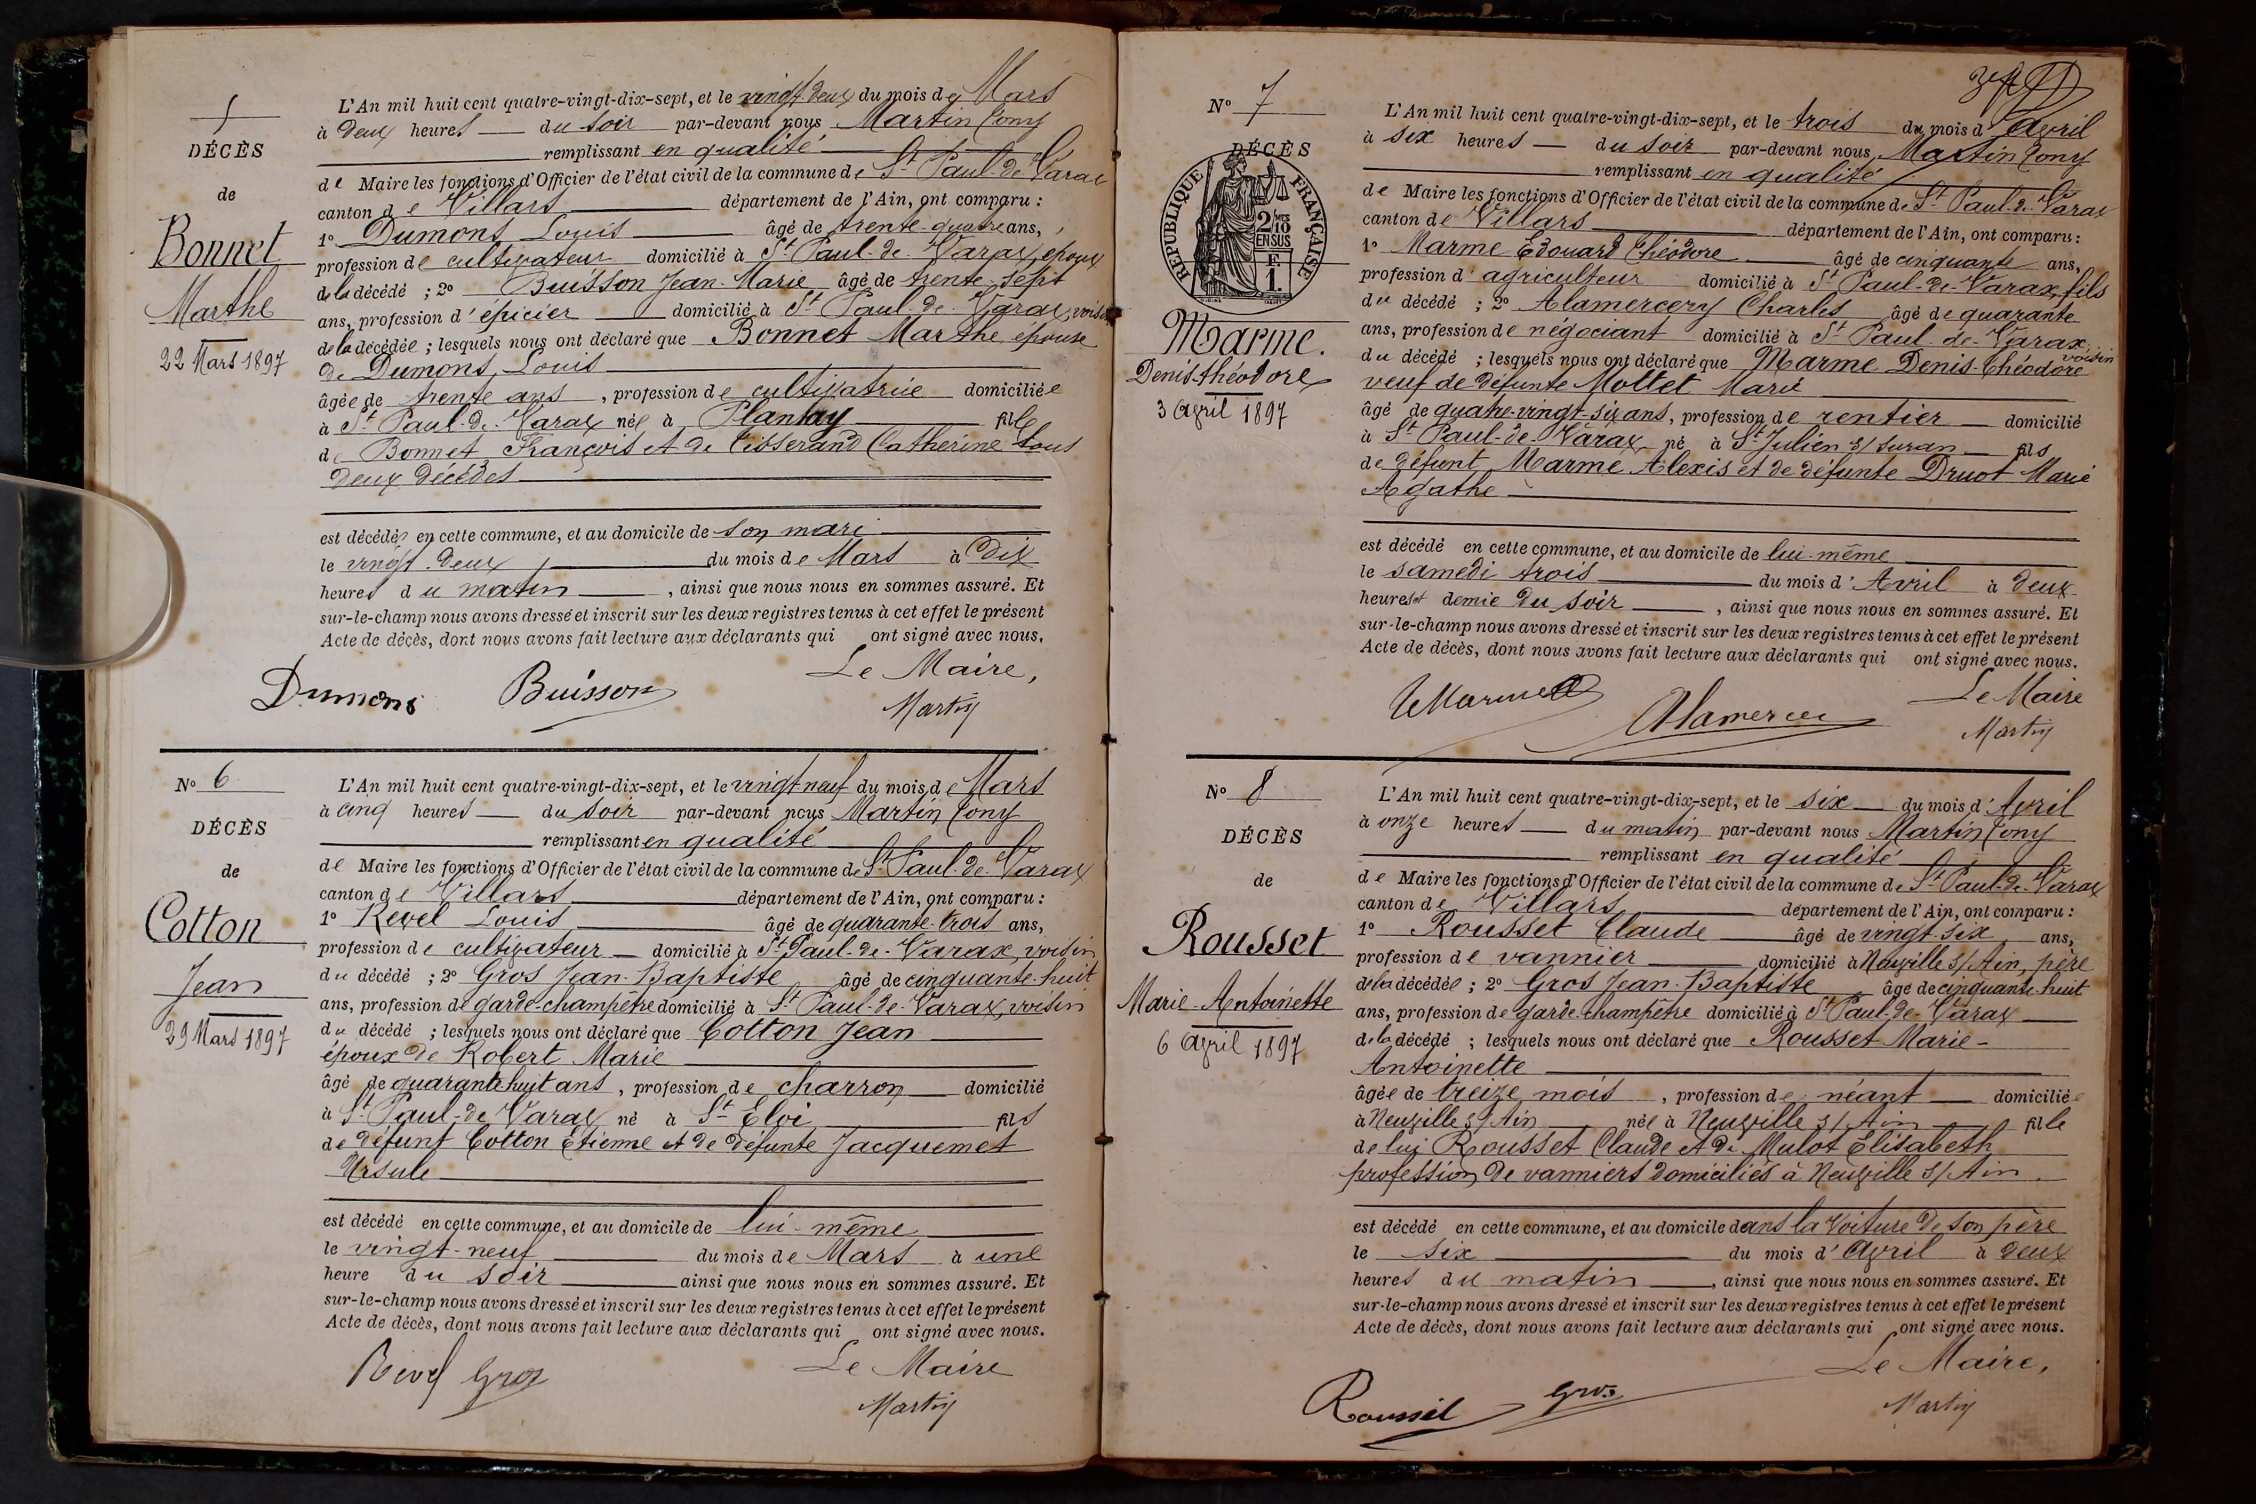 5
DÉCÈS
de
Bonnet
Marthe
22 Mars 1897
L'An mil huit cent quatre-vingt-dix-sept, et le vingt deux du mois de Mars
à deux heures du soir par-devant nous Martin Tony
remplissant en qualité
de Maire les fonctions d'Officier de l'état civil de la commune de St Paul-de-Varax
canton de Villars département de l'Ain, ont comparu :
1° Dumons Louis âgé de trente-quatre ans,
profession de cultivateur domicilié à St Paul-de-Varax, époux
de la décédé ; 2° Buisson Jean-Marie âgé de trente-sept
ans, profession d'épicier domicilié à St Paul-de-Varax, voisin
de la décédée ; lesquels nous ont déclaré que Bonnet Marthe épouse
de Dumons Louis
âgée de trente ans, profession de cultivatrice domiciliée
à St Paul-de-Varax née à Plantay fille
de Bonnet François et de Tisserand Catherine tous
deux décédés
est décédée en cette commune, et au domicile de son mari
le vingt-deux du mois de Mars à Dix
heures du matin, ainsi que nous nous en sommes assuré. Et
sur-le-champ nous avons dressé et inscrit sur les deux registres tenus à cet effet le présent
Acte de décès, dont nous avons fait lecture aux déclarants qui ont signé avec nous.
Le Maire,
Dumons Buisson Martin
N° 6
DÉCÈS
de
Cotton
Jean
29 Mars 1897
L'An mil huit cent quatre-vingt-dix-sept, et le vingt neuf du mois de Mars
à cinq heures du soir par-devant nous Martin Tony
remplissant en qualité
de Maire les fonctions d'Officier de l'état civil de la commune de St Paul-de-Varax
canton de Villars département de l'Ain, ont comparu :
1° Revel Louis âgé de quarante-trois ans,
profession de cultivateur domicilié à St Paul-de-Varax, voisin
du décédé ; 2° Gros Jean-Baptiste âgé de cinquante-huit
ans, profession de garde-champêtre domicilié à St Paul-de-Varax, voisin
du décédé ; lesquels nous ont déclaré que Cotton Jean
époux de Robert Marie
âgé de quarante huit ans, profession de charron domicilié
à St Paul-de-Varax né à St Eloi fils
de défunt Cotton Etienne et de défunte Jacquemet
Ursule
est décédé en cette commune, et au domicile de lui-même
le vingt-neuf du mois de Mars à une
heure du soir ainsi que nous nous en sommes assuré. Et
sur-le-champ nous avons dressé et inscrit sur les deux registres tenus à cet effet le présent
Acte de décès, dont nous avons fait lecture aux déclarants qui ont signé avec nous.
Le Maire
Revel Gros Martin
N° 7
DÉCÈS
RÉPUBLIQUE FRANÇAISE
2/10 EN SUS
F.
1.
Marme.
Denis-théodore
3 Avril 1897
L'An mil huit cent quatre-vingt-dix-sept, et le trois du mois d'Avril
à six heures du soir par-devant nous Martin Tony
remplissant en qualité
de Maire les fonctions d'Officier de l'état civil de la commune de St Paul-de-Varax
canton de Villars département de l'Ain, ont comparu :
1° Marme Edouard Théodore âgé de cinquante ans,
profession d'agriculteur domicilié à St Paul-de-Varax, fils
du décédé ; 2° Alamercery Charles âgé de quarante
ans, profession de négociant domicilié à St Paul-de-Varax, voisin
du décédé ; lesquels nous ont déclaré que Marme Denis-Théodore
veuf de défunte Mollet Marie
âgé de quatre-vingt-six ans, profession de rentier domicilié
à St Paul-de-Varax né à St Julien s/ Suran fils
de défunt Marme Alexis et de défunte Druot Marie
Agathe
est décédé en cette commune, et au domicile de lui-même
le samedi trois du mois d'Avril à deux
heures et demie du soir, ainsi que nous nous en sommes assuré. Et
sur-le-champ nous avons dressé et inscrit sur les deux registres tenus à cet effet le présent
Acte de décès, dont nous avons fait lecture aux déclarants qui ont signé avec nous.
Le Maire
Martin
N° 8
DÉCÈS
de
Rousset
Marie-Antoinette
6 Avril 1897
L'An mil huit cent quatre-vingt-dix-sept, et le six du mois d'Avril
à onze heures du matin par-devant nous Martin Tony
remplissant en qualité
de Maire les fonctions d'Officier de l'état civil de la commune de St Paul-de-Varax
canton de Villars département de l'Ain, ont comparu :
1° Rousset Claude âgé de vingt-six ans,
profession de vannier domicilié à Neuville s/ Ain, père
de la décédée ; 2° Gros Jean-Baptiste âgé de cinquante-huit
ans, profession de garde-champêtre domicilié à St Paul-de-Varax
de la décédé ; lesquels nous ont déclaré que Rousset Marie-
Antoinette
âgée de treize mois, profession de néant domiciliée
à Neuville s/ Ain née à Neuville s/ Ain fille
de lui Rousset Claude et de Mulot Elisabeth
profession de vanniers domiciliés à Neuville s/ Ain.
est décédé en cette commune, et au domicile dans la voiture de son père
le six du mois d'Avril à deux
heures du matin, ainsi que nous nous en sommes assuré. Et
sur-le-champ nous avons dressé et inscrit sur les deux registres tenus à cet effet le présent
Acte de décès, dont nous avons fait lecture aux déclarants qui ont signé avec nous.
Le Maire,
Gros Martin